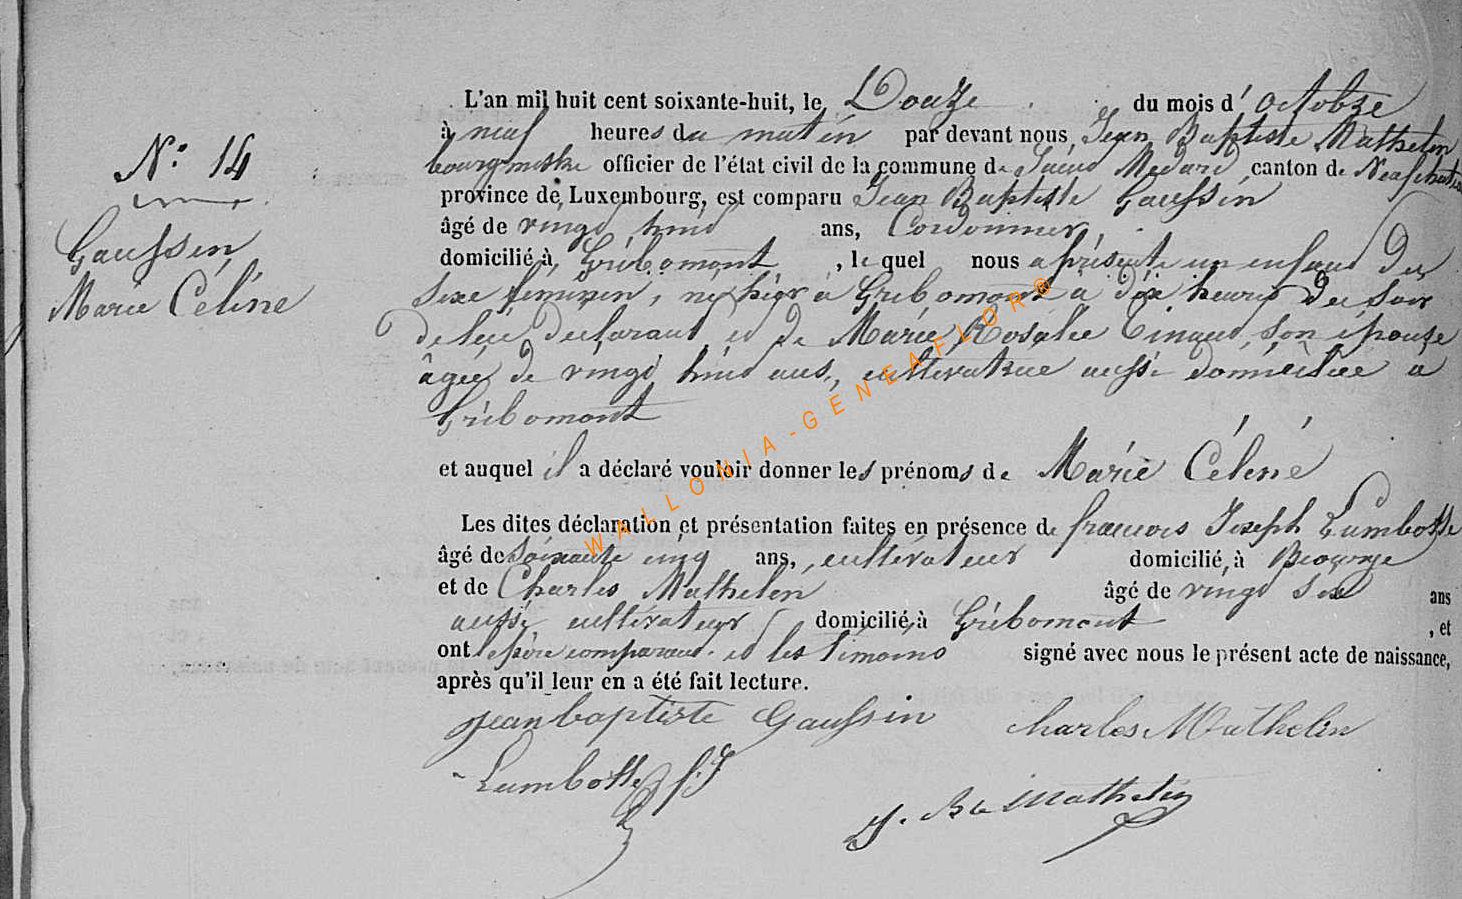 N.° 14
Gaussin
Marie Céline
L'an mil huit cent soixante-huit, le Douze du mois d' octobre
à neuf heures du matin par devant nous, Jean Baptiste Mathelin
bourgmestre officier de l'état civil de la commune de Saint Médard, canton de Neufchateau
province de Luxembourg, est comparu Jean Baptiste Gaussin
âgé de vingt huit ans, Cordonnier,
domicilié à Gribomont, le quel nous a présenté un enfant du
sexe féminin, né hier à Gribomont à dix heures du soir
de lui déclarant et de Marie Rosalie son épouse
âgée de vingt huit ans, cultivatrice aussi domiciliée à
Gribomont
et auquel il a déclaré vouloir donner les prénoms de Marie Céline
Les dites déclaration et présentation faites en présence de françois Joseph Lambotte
âgé de soixante cinq ans, cultivateur domicilié à
et de Charles Mathelin âgé de vingt six ans
aussi cultivateur domicilié à Gribomont, et
ont le père comparant et les témoins signé avec nous le présent acte de naissance,
après qu'il leur en a été fait lecture.
jean baptiste Gaussin charles Mathelin
Lambotte f. J
J. Bte Mathelin
WALLONIA-GENEAFLOR®